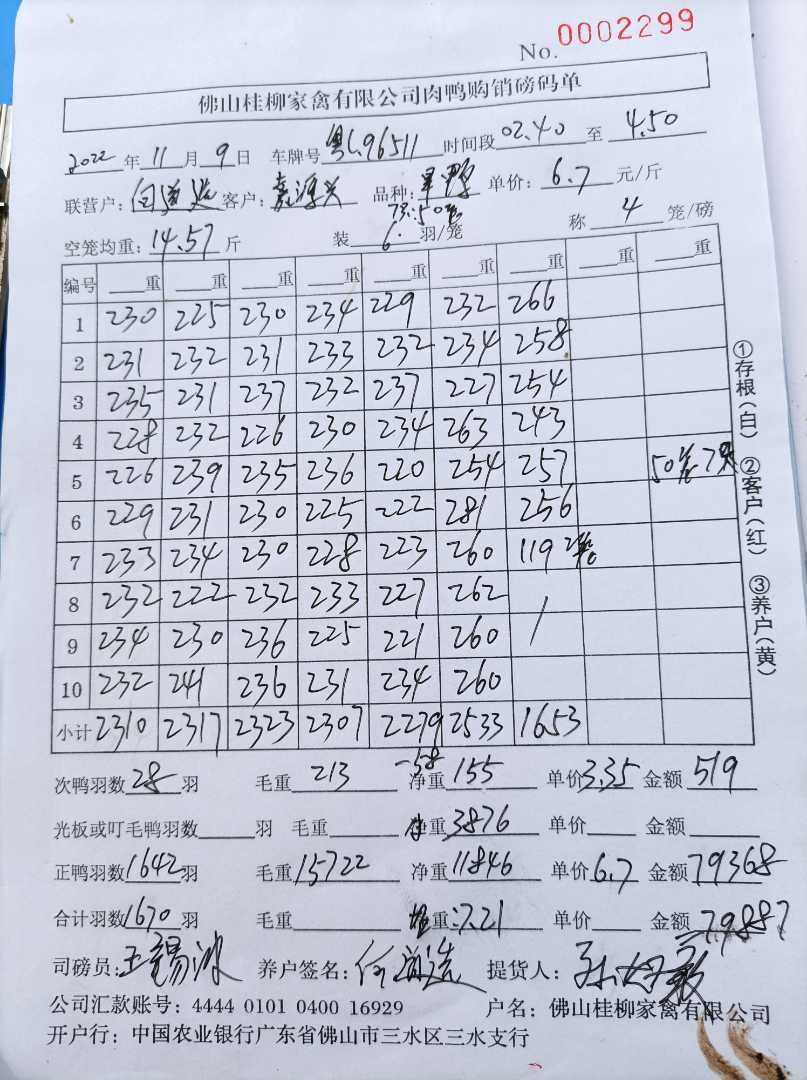 No. 0002299
佛山桂柳家禽有限公司肉鸭购销磅码单
2022 年 11 月 9 日 车牌号 粤L96511 时间段 02.40 至 4.50
联营户: 何道选 客户: 客户: 品种: 单价: 6.7 元/斤
7只:50笼
空笼均重: 14.57 斤 装 6. 羽/笼 称 4 笼/磅
编号 重 重 重 重 重 重 重 重 重
1 230 225 230 234 229 232 266
2 231 232 231 233 232 234 258
3 235 231 237 232 237 227 254
4 228 232 226 230 234 263 243
5 226 239 235 236 220 254 257 50笼7只
6 229 231 230 225 222 281 256
7 233 234 230 228 223 260 119 2笼
8 232 222 232 233 227 262
9 234 230 236 225 221 260 /
10 232 241 236 231 234 260
小计 2310 2317 2323 2307 2279 2533 1653
①存根(白) ②客户(红) ③养户(黄)
-58
次鸭羽数 28 羽 毛重 213 净重 155 单价 3.35 金额 519
光板或叮毛鸭羽数 羽 毛重 重 3876 单价 金额
正鸭羽数 1642 羽 毛重 15722 净重 11846 单价 6.7 金额 79368
合计羽数 1670 羽 毛重 重: 7.21 单价 金额 79887
司磅员: 王锡波 养户签名: 何道选 提货人:
公司汇款账号: 4444 0101 0400 16929 户名: 佛山桂柳家禽有限公司
开户行: 中国农业银行广东省佛山市三水区三水支行